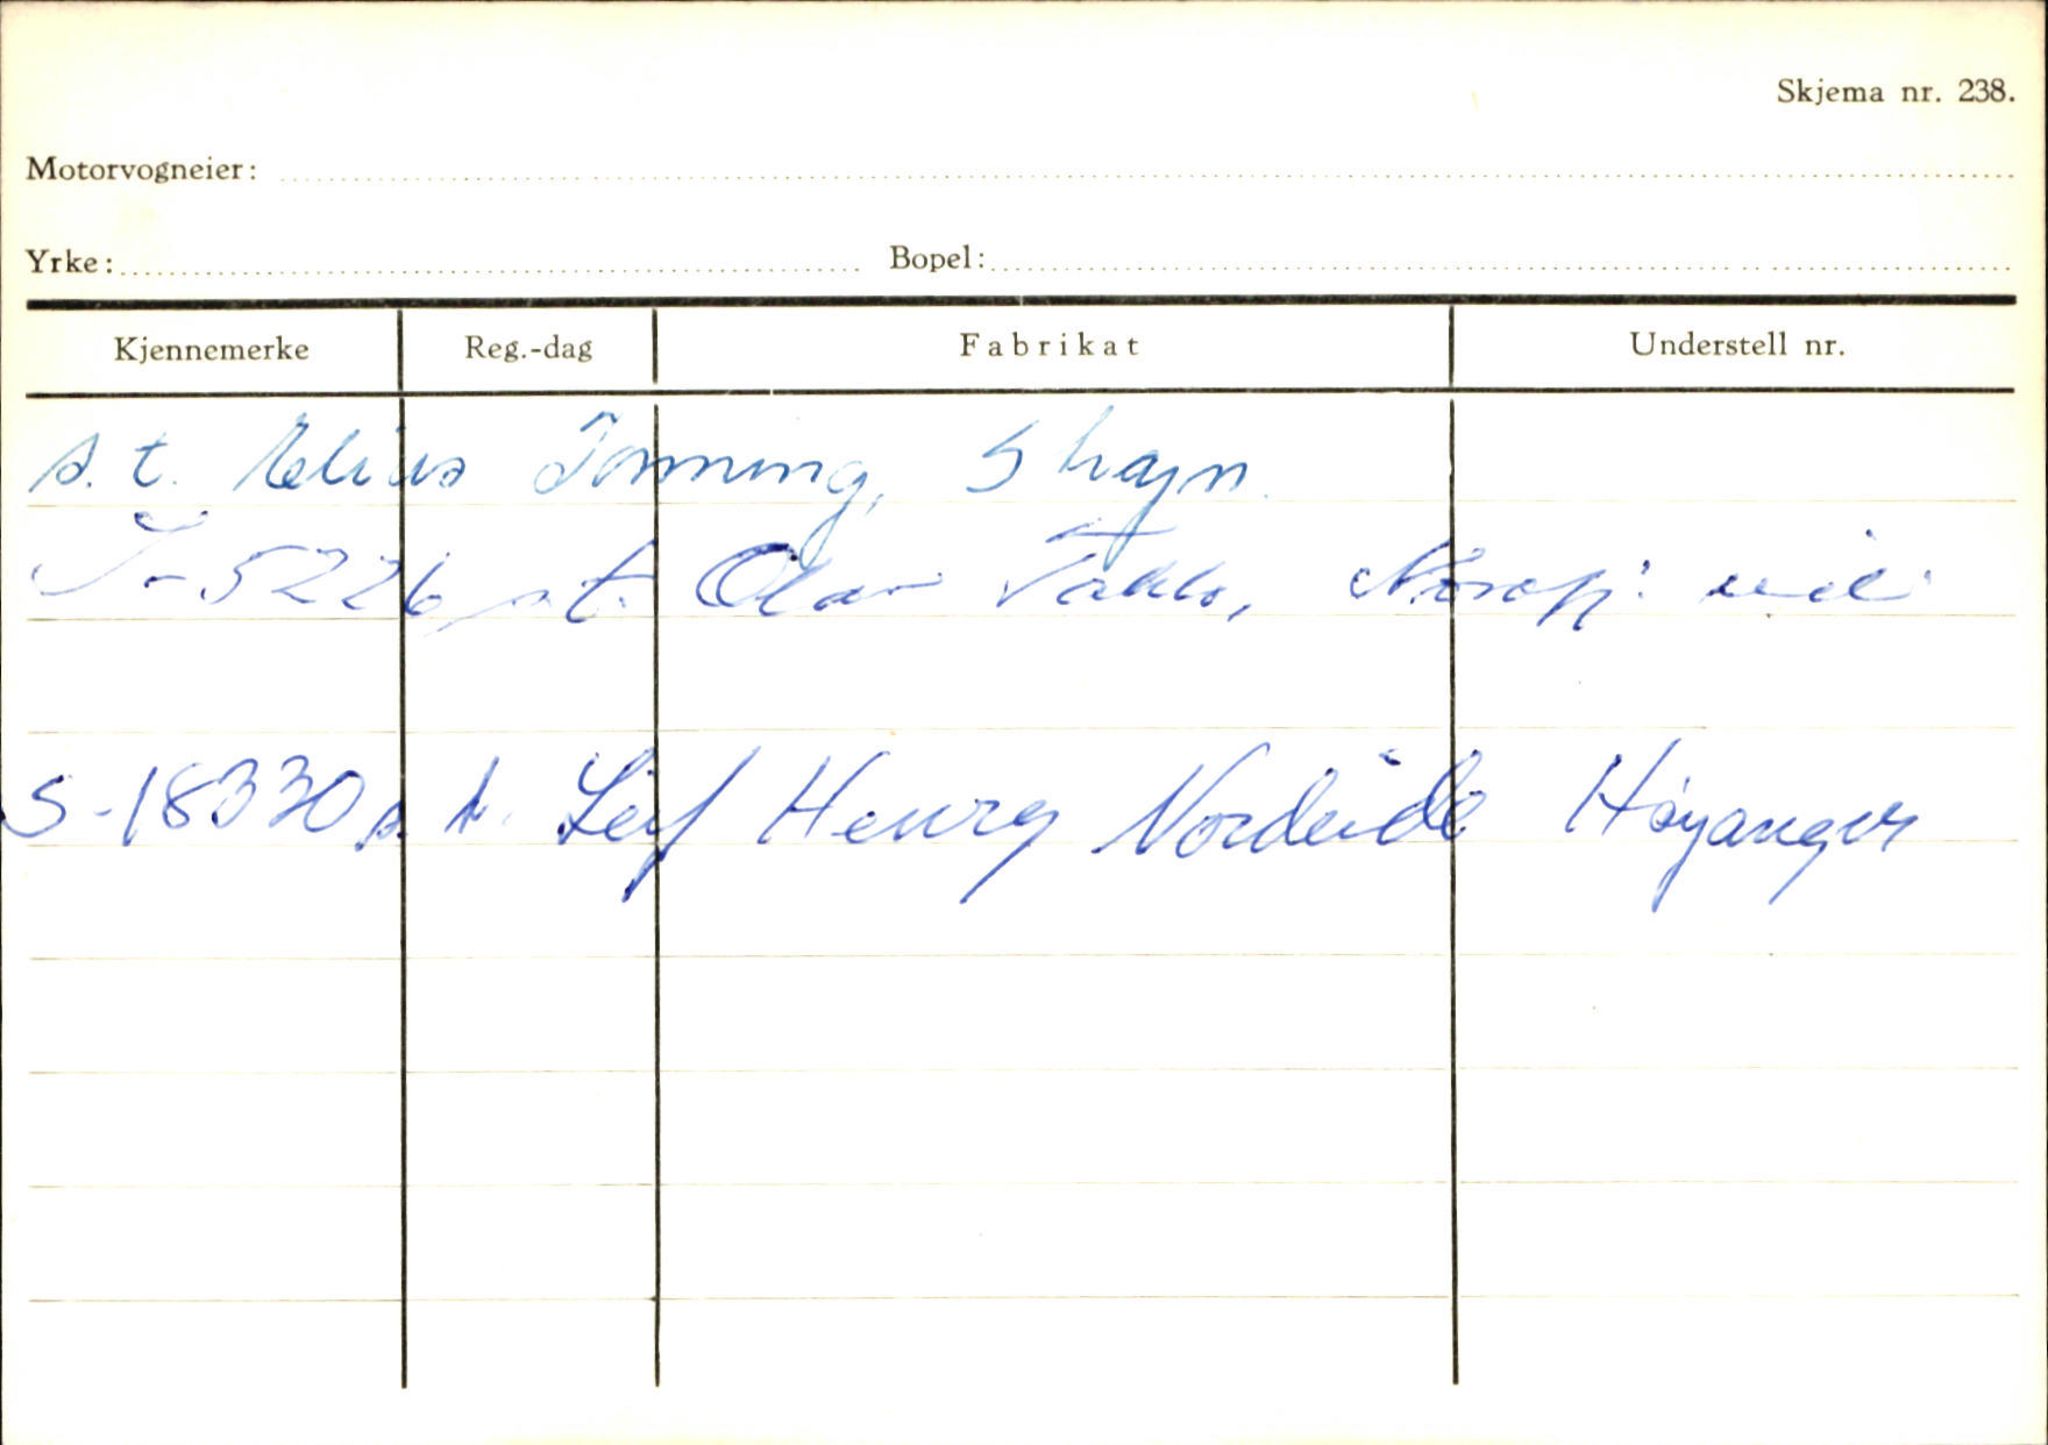 Skjema nr. 238.
Motorvogneier:
Yrke: Bopel:
Kjennemerke Reg.-dag Fabrikat Understell nr.
s. t. Tonning, Shagn.
S-5226 s. t. Olav
S-18330 s. t. Leif Henry Nordeide Høyanger